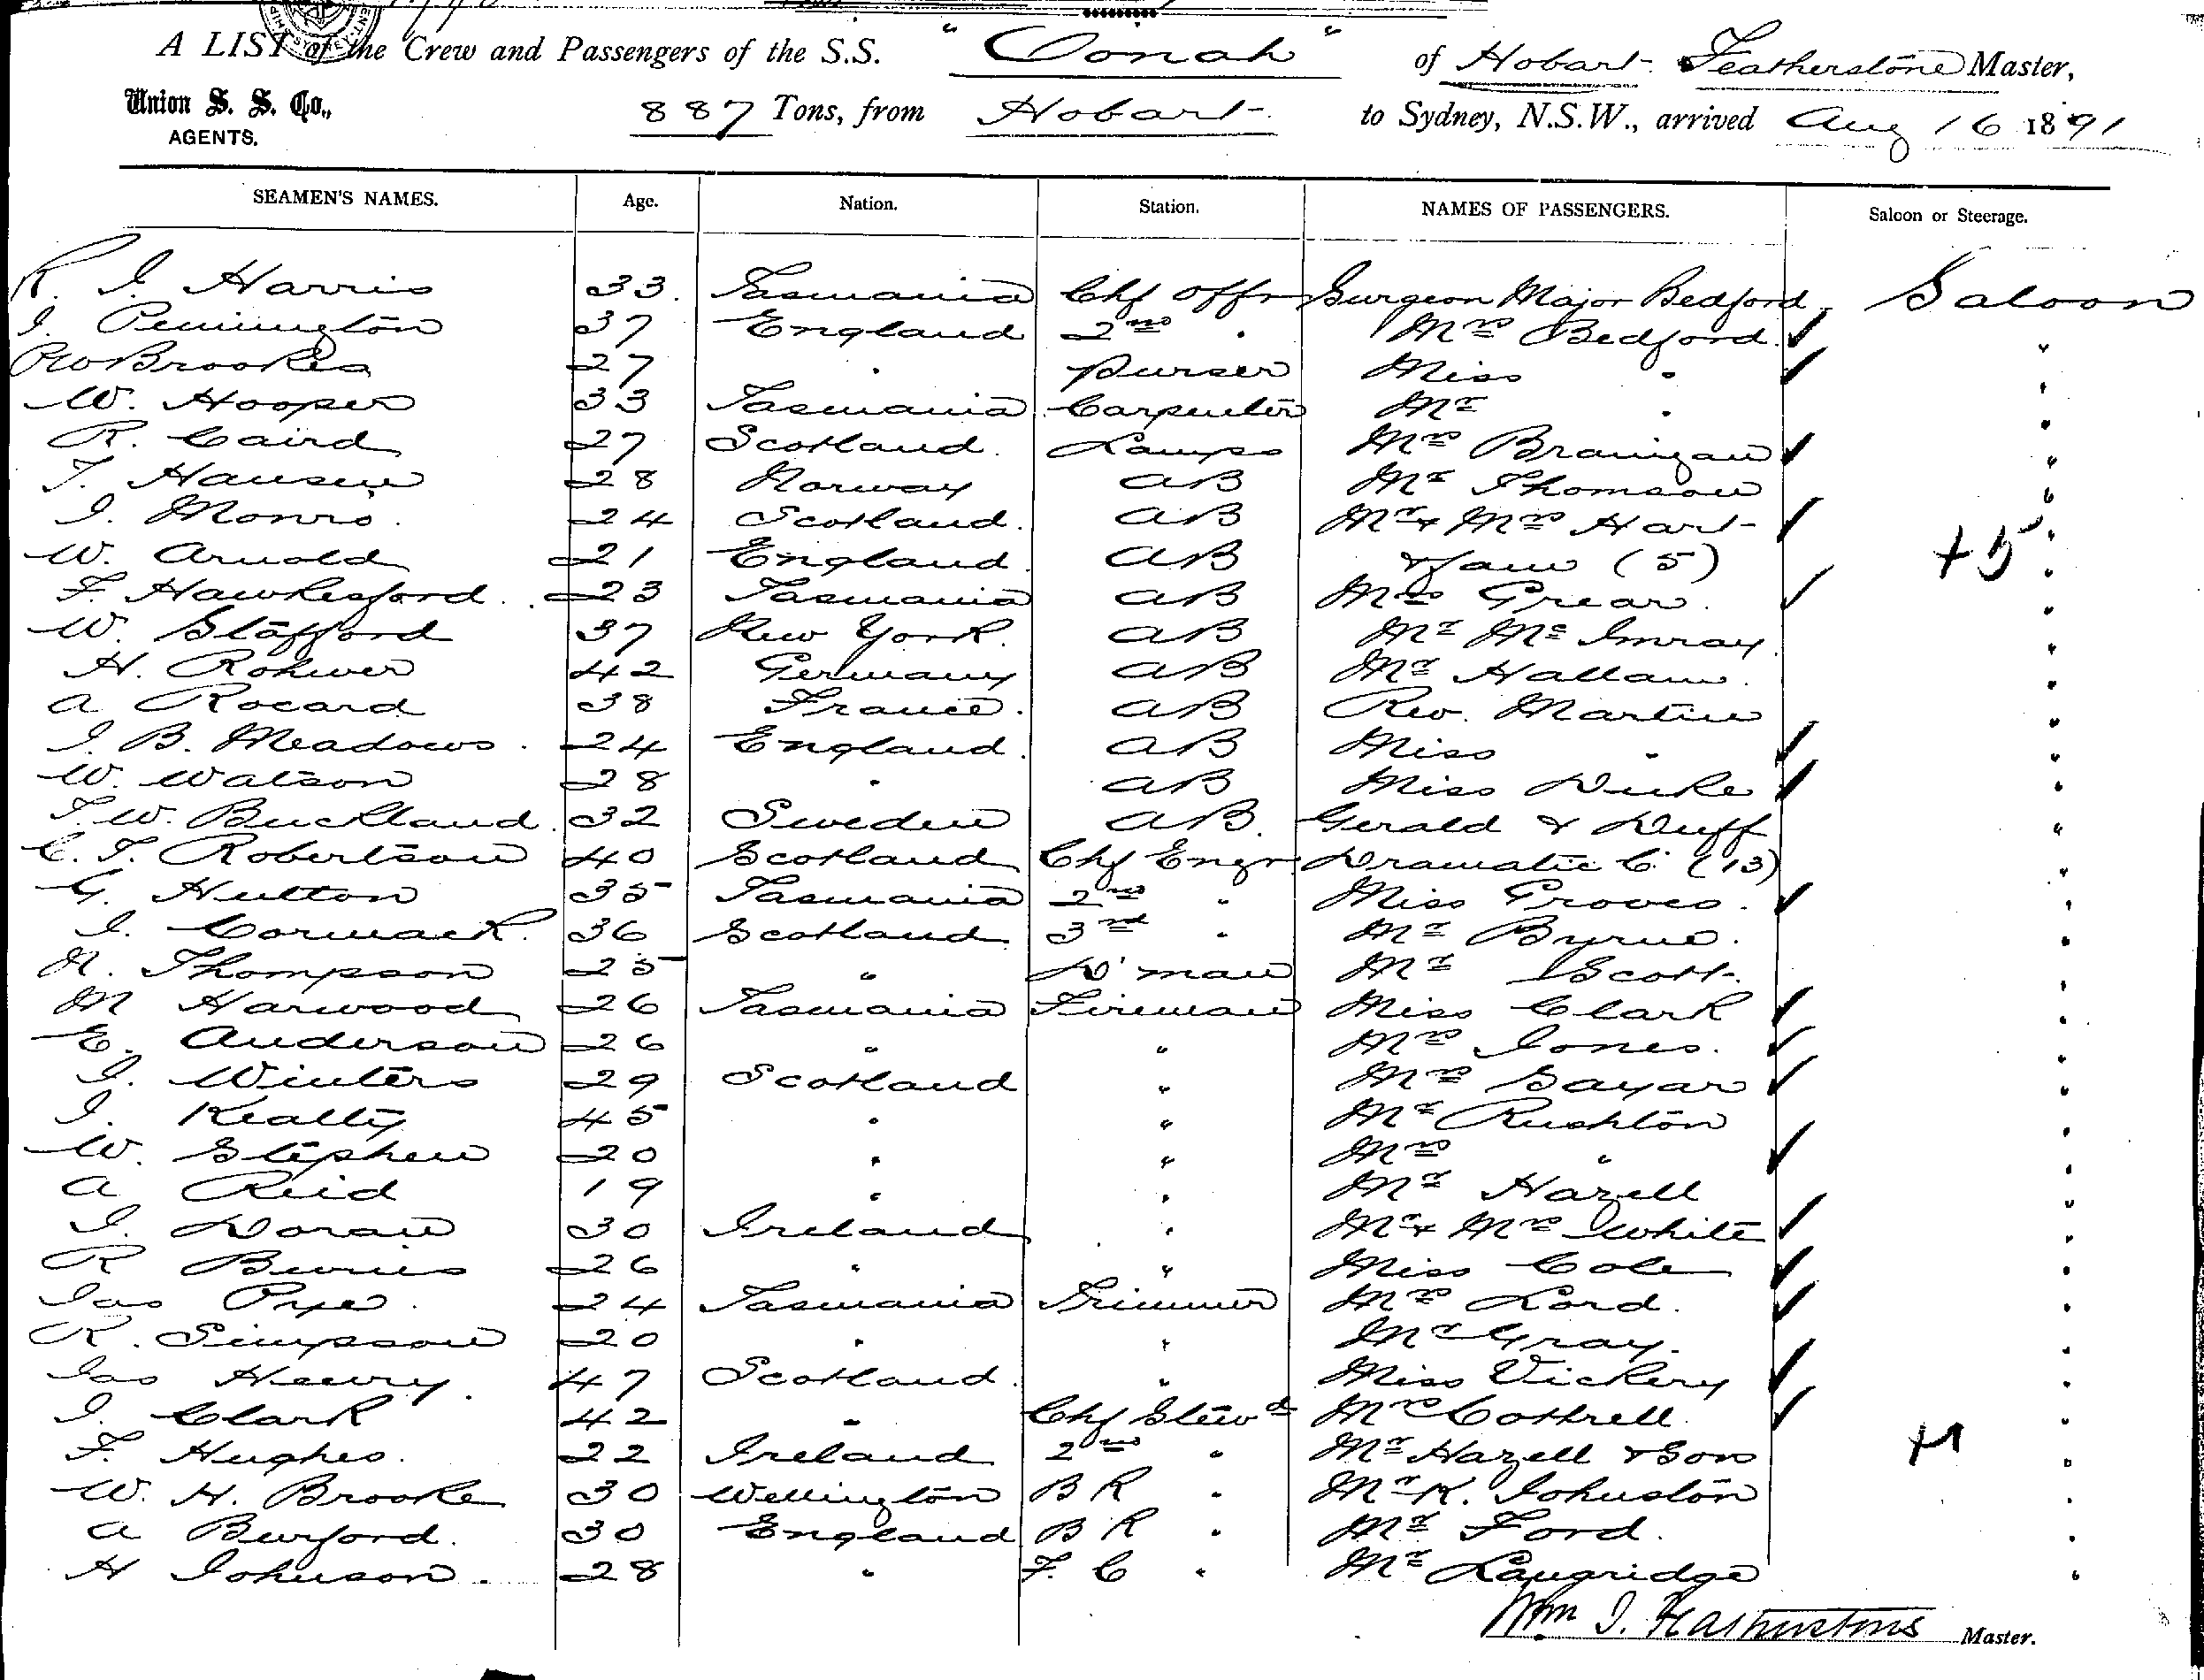 A LIST of the Crew and Passengers of the S.S. "Oonah" of Hobart Featherstone Master,
Union S. S. Co., 887 Tons, from Hobart to Sydney, N.S.W., arrived Aug 16 1891
AGENTS.
SEAMEN'S NAMES. Age. Nation. Station. NAMES OF PASSENGERS. Saloon or Steerage.
R. J. Harris 33. Tasmania Chf Offr Surgeon Major Bedford Saloon
J. Pennington 37 England 2nd " Mrs Bedford "
Brookes 27 " Purser Miss " "
W. Hooper 33 Tasmania Carpenter Mr " "
R. Caird 27 Scotland Lamps Mrs Branigan "
T. Hansen 28 Norway AB Mr Thomson "
J. Monro 24 Scotland AB Mr & Mrs Hart "
W. Arnold 21 England AB & fam (5) +5 "
F. Hawkesford 23 Tasmania AB Grear "
W. Stafford 37 New York AB Mr Mc Imray "
H. Rohwer 42 Germany AB Mr Hallam "
A Rocard 38 France AB Rev. Martin "
J. B. Meadows 24 England AB Miss " "
W. Watson 28 " AB Miss Duke "
T. W. Buckland 32 Sweden AB Gerald & Duff "
C. T. Robertson 40 Scotland Chf Engr Dramatic C. (13) "
G. Hutton 35 Tasmania 2nd " Miss Groves "
J. Cormack 36 Scotland 3rd " Mr Byrne "
N. Thompson 25 " D'man Mr Scott "
M Harwood 26 Tasmania Fireman Miss Clark "
E. Anderson 26 " " Mrs Jones "
J. Winters 29 Scotland " Mrs Sayar "
J. Kealty 45 " " Mr Rushton "
W. Stephen 20 " " Mrs " "
A Reid 19 " " Mr Hazell "
J. Doran 30 Ireland " Mr & Mrs White "
R 26 " " Miss Cole "
Jas Pye 24 Tasmania Trimmer Mrs Lord "
R. Simpson 20 " " Mr Gray "
Jas Henry 47 Scotland " Miss Vickery "
J. Clark 42 " Chf Stewd Mrs Cottrell "
F. Hughes 22 Ireland 2nd " Mr Hazell & Son +1 "
W. H. Brooke 30 Wellington BR " Mr K. Johnston "
A Burford 30 England BR " Mr Ford "
H Johnson 28 " F. C " Mr Langridge "
Wm J. Featherstone Master.